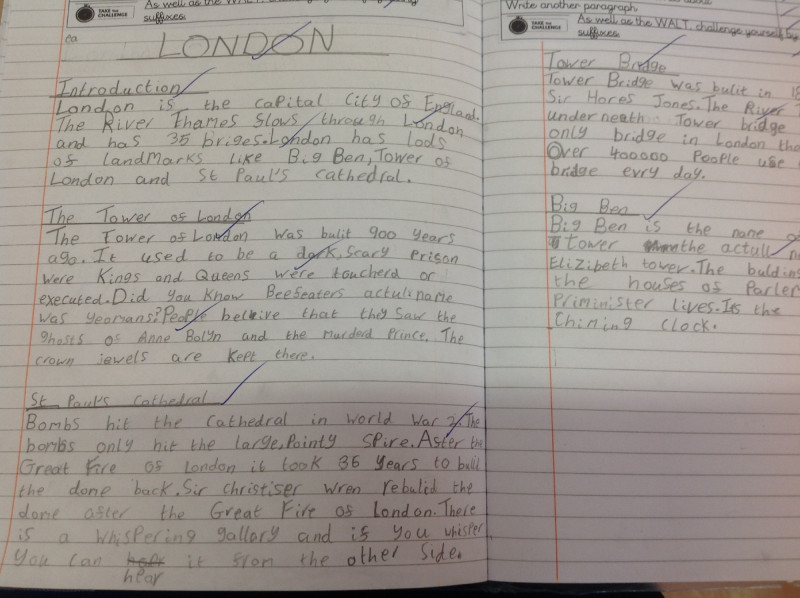 As well as the WALT, challenge
TAKE THE CHALLENGE
suffixes
ea
LONDON
Introduction
London is the capital city of England.
The River Thames flows through London
and has 35 briges. London has lods
of landmarks like Big Ben, Tower of
London and St Paul's Cathedral.
The Tower of London
The Tower of London was bulit 900 years
ago. It used to be a dark, scary prison
were Kings and Queens were toucherd or
executed. Did you know Beefeaters actul name
was yeomans? People beleive that they saw the
ghosts of Anne Bolyn and the murderd Prince. The
crown jewels are kept there.
St Paul's Cathedral
Bombs hit the Cathedral in World War 2. The
bombs only hit the large, Pointy spire. After the
Great Fire of London it took 35 years to bulid
the dome back. Sir Christifer Wren rebulid the
dome after the Great Fire of London. There
is a whispering gallary and if you whisper
you can it from the other side.
hear
Write another paragraph
As well as the WALT, challenge yourself by
TAKE THE CHALLENGE
suffixes
Tower Bridge
Tower Bridge was bulit in 18
Sir Hores Jones. The River
underneath Tower bridge
only bridge in London tha
Over 400000 People use
bridge evry day.
Big Ben
Big Ben is the name o
tower the actull n
Elizibeth tower. The bulding
the houses of Parler
Priminister lives. Its the
Chiming clock.